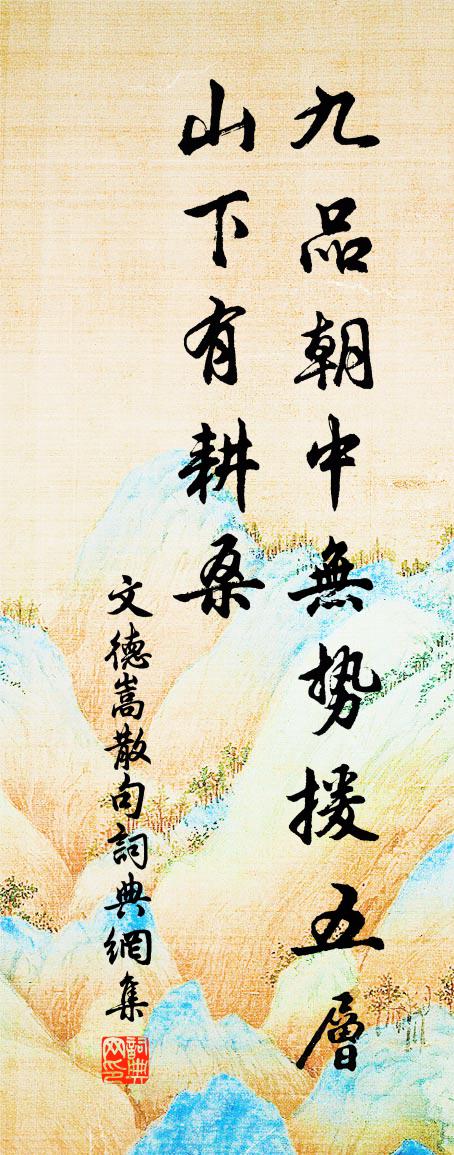 九品朝中無勢援五層
山下有耕桑
文德嵩散句詞典網集
詞典
网印